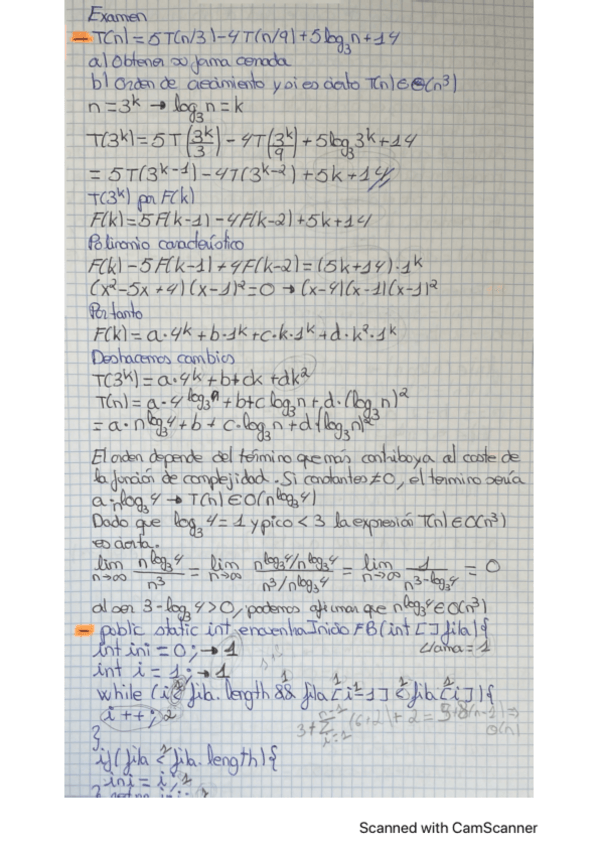 Examen
- T(n) = 5T(n/3) - 4T(n/9) + 5log₃n + 14
a) Obtener su forma cerrada
b) Orden de crecimiento y si es cierto T(n) ∈ Θ(n³)
n = 3ᵏ → log₃n = k
T(3ᵏ) = 5T(3ᵏ/3) - 4T(3ᵏ/9) + 5log₃3ᵏ + 14
= 5T(3ᵏ⁻¹) - 4T(3ᵏ⁻²) + 5k + 14
T(3ᵏ) por F(k)
F(k) = 5F(k-1) - 4F(k-2) + 5k + 14
Polinomio característico
F(k) - 5F(k-1) + 4F(k-2) = (5k+14)·1ᵏ
(x²-5x+4)(x-1)² = 0 → (x-4)(x-1)(x-1)²
Por tanto
F(k) = a·4ᵏ + b·1ᵏ + c·k·1ᵏ + d·k²·1ᵏ
Deshacemos cambios
T(3ᵏ) = a·4ᵏ + b + ck + dk²
T(n) = a·4^log₃n + b + c log₃n + d·(log₃n)²
= a·n^log₃4 + b + c·log₃n + d·(log₃n)²
El orden depende del termino que más contribuya al coste de
la función de complejidad. Si constantes ≠ 0, el termino sería
a·n^log₃4 → T(n) ∈ O(n^log₃4)
Dado que log₃4 = 1 y pico < 3 la expresión T(n) ∈ O(n³)
es cierta.
lim n→∞ n^log₃4 / n³ = lim n→∞ (n^log₃4/n^log₃4) / (n³/n^log₃4) = lim n→∞ 1 / n^(3-log₃4) = 0
al ser 3 - log₃4 > 0, podemos afirmar que n^log₃4 ∈ O(n³)
- public static int encuentraInicio FB (int [] fila) {
llama = 1
int ini = 0; → 1
int i = 1; → 1
while (i < fila.length && fila [i-1] < fila [i]) {
i++; 2
}
if (fila < fila.length) {
ini = i; 1